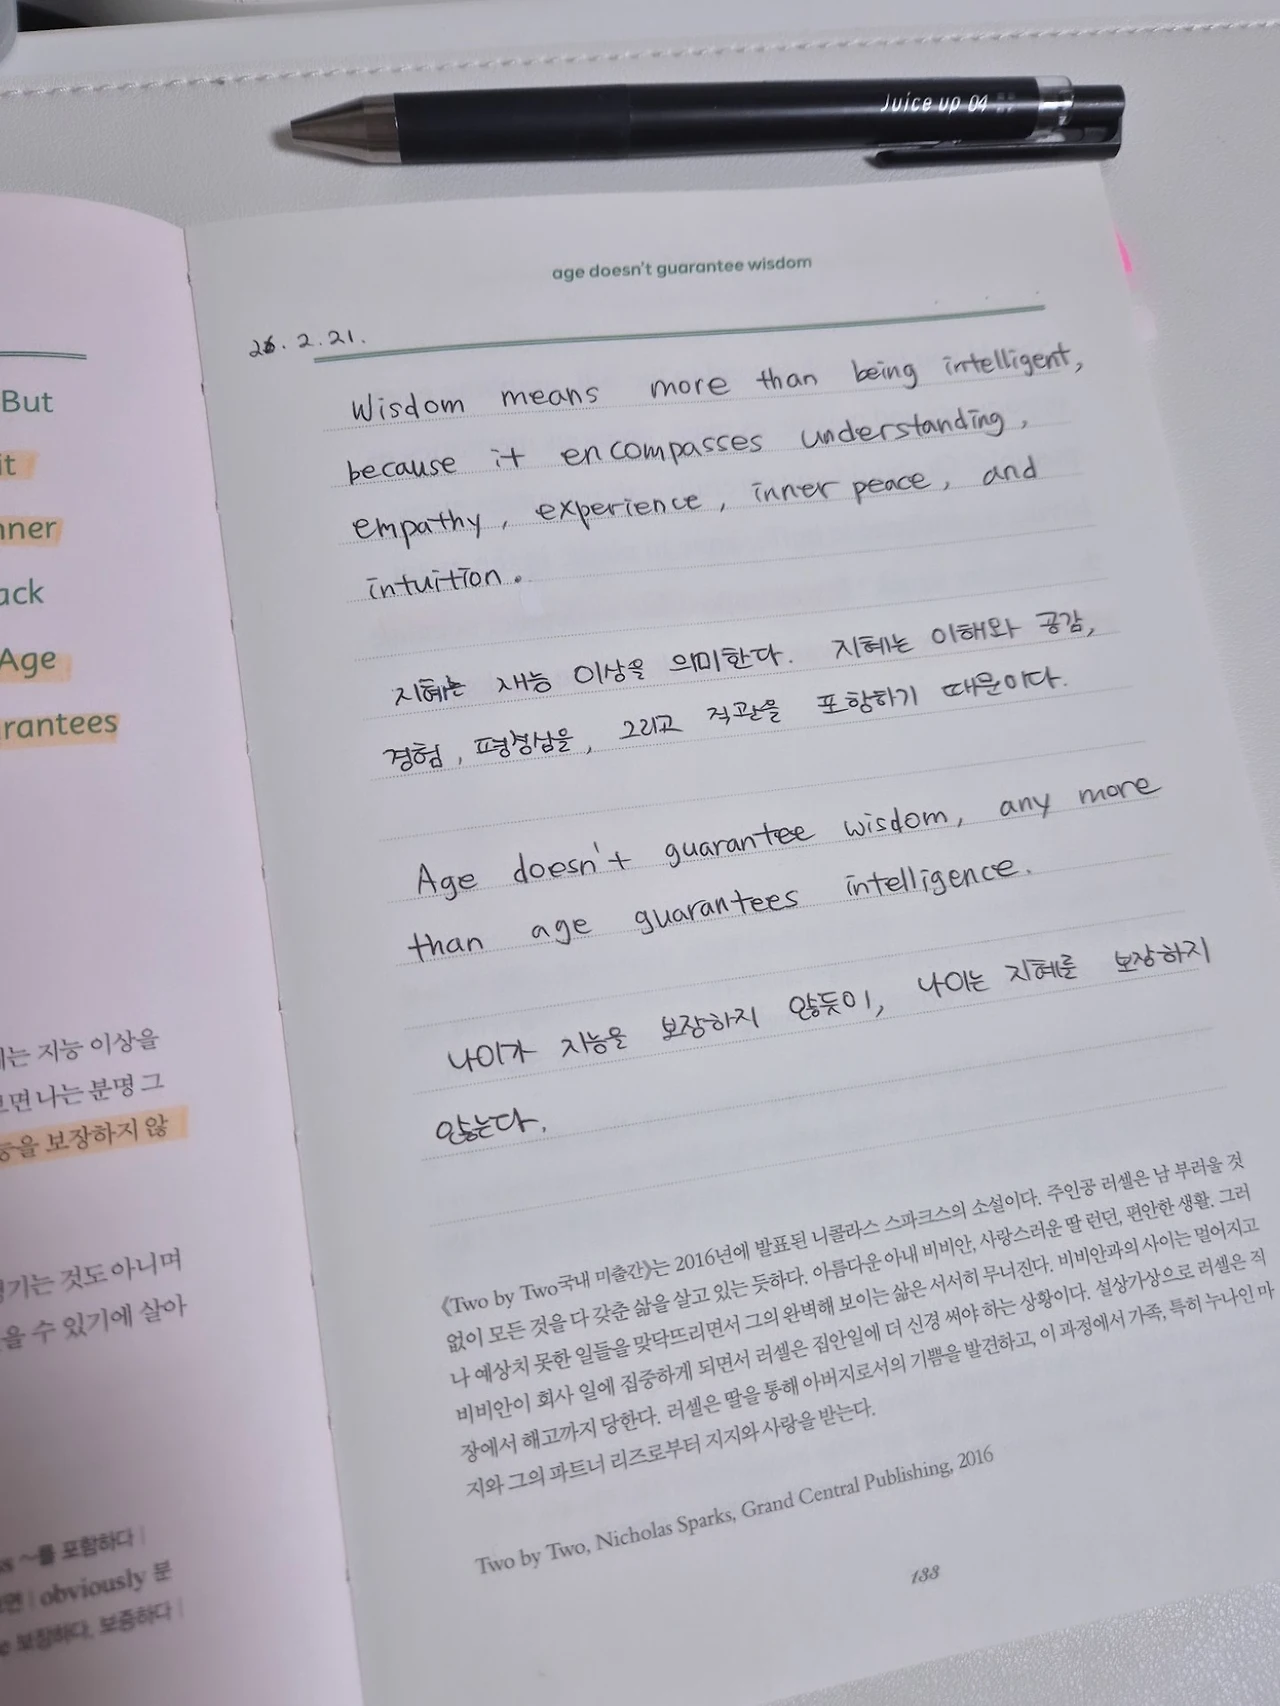 Juice up 04
age doesn't guarantee wisdom
26. 2. 21.
Wisdom means more than being intelligent,
because it encompasses understanding,
empathy, experience, inner peace, and
intuition.
지혜는 재능 이상을 의미한다. 지혜는 이해와 공감,
경험, 평정심을, 그리고 직관을 포함하기 때문이다.
Age doesn't guarantee wisdom, any more
than age guarantees intelligence.
나이가 지능을 보장하지 않듯이, 나이는 지혜를 보장하지
않는다.
《Two by Two국내 미출간》는 2016년에 발표된 니콜라스 스파크스의 소설이다. 주인공 러셀은 남 부러울 것
없이 모든 것을 다 갖춘 삶을 살고 있는 듯하다. 아름다운 아내 비비안, 사랑스러운 딸 런던, 편안한 생활. 그러
나 예상치 못한 일들을 맞닥뜨리면서 그의 완벽해 보이는 삶은 서서히 무너진다. 비비안과의 사이는 멀어지고
비비안이 회사 일에 집중하게 되면서 러셀은 집안일에 더 신경 써야 하는 상황이다. 설상가상으로 러셀은 직
장에서 해고까지 당한다. 러셀은 딸을 통해 아버지로서의 기쁨을 발견하고, 이 과정에서 가족, 특히 누나인 마
지와 그의 파트너 리즈로부터 지지와 사랑을 받는다.
Two by Two, Nicholas Sparks, Grand Central Publishing, 2016
133
But
it
nner
ack
Age
rantees
는 지능 이상을
면 나는 분명 그
능을 보장하지 않
기는 것도 아니며
을 수 있기에 살아
ss ~를 포함하다 |
면 | obviously 분
e 보장하다, 보증하다 |